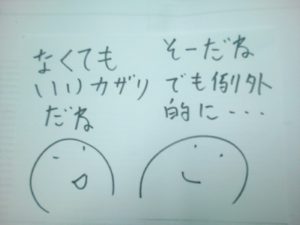 なくても
いいカザリ
だね
そーだね
でも例外
的に・・・